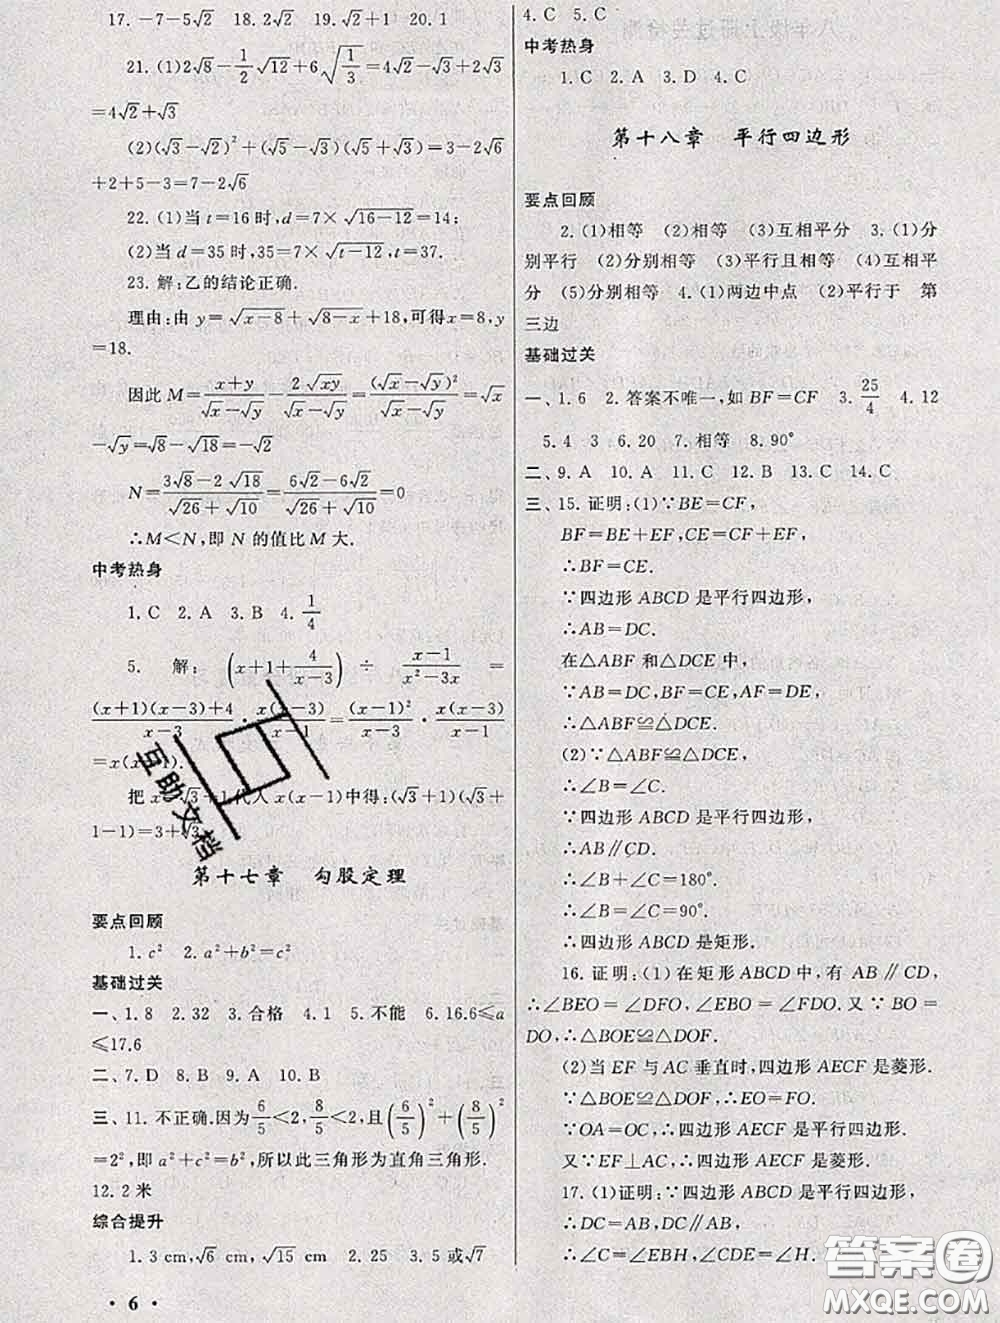 17. −7−5√2 18. √5 19. √2+1 20. 1
21. (1)2√8−1/2√12+6√(1/3)=4√2−√3+2√3
=4√2+√3
(2)(√3−√2)²+(√5−√3)(√5+√3)=3−2√6
+2+5−3=7−2√6
22. (1)当 t=16 时,d=7×√(16−12)=14;
(2)当 d=35 时,35=7×√(t−12),t=37.
23. 解:乙的结论正确.
理由:由 y=√(x−8)+√(8−x)+18,可得 x=8,y
=18.
因此 M=(x+y)/(√x−√y)−2√(xy)/(√x−√y)=(√x−√y)²/(√x−√y)=√x
−√y=√8−√18=−√2
N=(3√8−2√18)/(√26+√10)=(6√2−6√2)/(√26+√10)=0
∴M<N,即 N 的值比 M 大.
中考热身
1. C 2. A 3. B 4. 1/4
5. 解: (x+1+4/(x−3)) ÷ (x−1)/(x²−3x) =
((x+1)(x−3)+4)/(x−3)·x(x−3)/(x−1)=(x−1)²/(x−3)·x(x−3)/(x−1)
=x(x−1).
把 x=√3+1代入 x(x−1)中得:(√3+1)(√3+
1−1)=3+√3
第十七章 勾股定理
要点回顾
1. c² 2. a²+b²=c²
基础过关
一、1. 8 2. 32 3. 合格 4. 1 5. 不能 6. 16.6≤a
≤17.6
二、7. D 8. B 9. A 10. B
三、11. 不正确.因为6/5<2,8/5<2,且(6/5)²+(8/5)²
=2²,即 a²+c²=b²,所以此三角形为直角三角形.
12. 2 米
综合提升
1. 3 cm,√6 cm,√15 cm 2. 25 3. 5 或√7
· 6 ·
4. C 5. C
中考热身
1. C 2. A 3. D 4. C
第十八章 平行四边形
要点回顾
2. (1)相等 (2)相等 (3)互相平分 3. (1)分
别平行 (2)分别相等 (3)平行且相等 (4)互相平
分 (5)分别相等 4. (1)两边中点 (2)平行于 第
三边
基础过关
一、1. 6 2. 答案不唯一,如 BF=CF 3. 25/4 4. 12
5. 4 3 6. 20 7. 相等 8. 90°
二、9. A 10. A 11. C 12. B 13. C 14. C
三、15. 证明:(1)∵BE=CF,
BF=BE+EF,CE=CF+EF,
∴BF=CE.
∵四边形 ABCD 是平行四边形,
∴AB=DC.
在△ABF 和△DCE 中,
∵AB=DC,BF=CE,AF=DE,
∴△ABF≌△DCE.
(2)∵△ABF≌△DCE,
∴∠B=∠C.
∵四边形 ABCD 是平行四边形,
∴AB∥CD.
∴∠B+∠C=180°.
∴∠B=∠C=90°.
∴四边形 ABCD 是矩形.
16. 证明:(1)在矩形 ABCD 中,有 AB∥CD,
∴∠BEO=∠DFO,∠EBO=∠FDO.又∵BO=
DO,∴△BOE≌△DOF.
(2)当 EF 与 AC 垂直时,四边形 AECF 是菱形.
∵△BOE≌△DOF,∴EO=FO.
∵OA=OC,∴四边形 AECF 是平行四边形.
又∵EF⊥AC,∴四边形 AECF 是菱形.
17. (1)证明:∵四边形 ABCD 是平行四边形,
∴DC=AB,DC∥AB,
∴∠C=∠EBH,∠CDE=∠H.
互助文档
答案圈
MXQE.COM